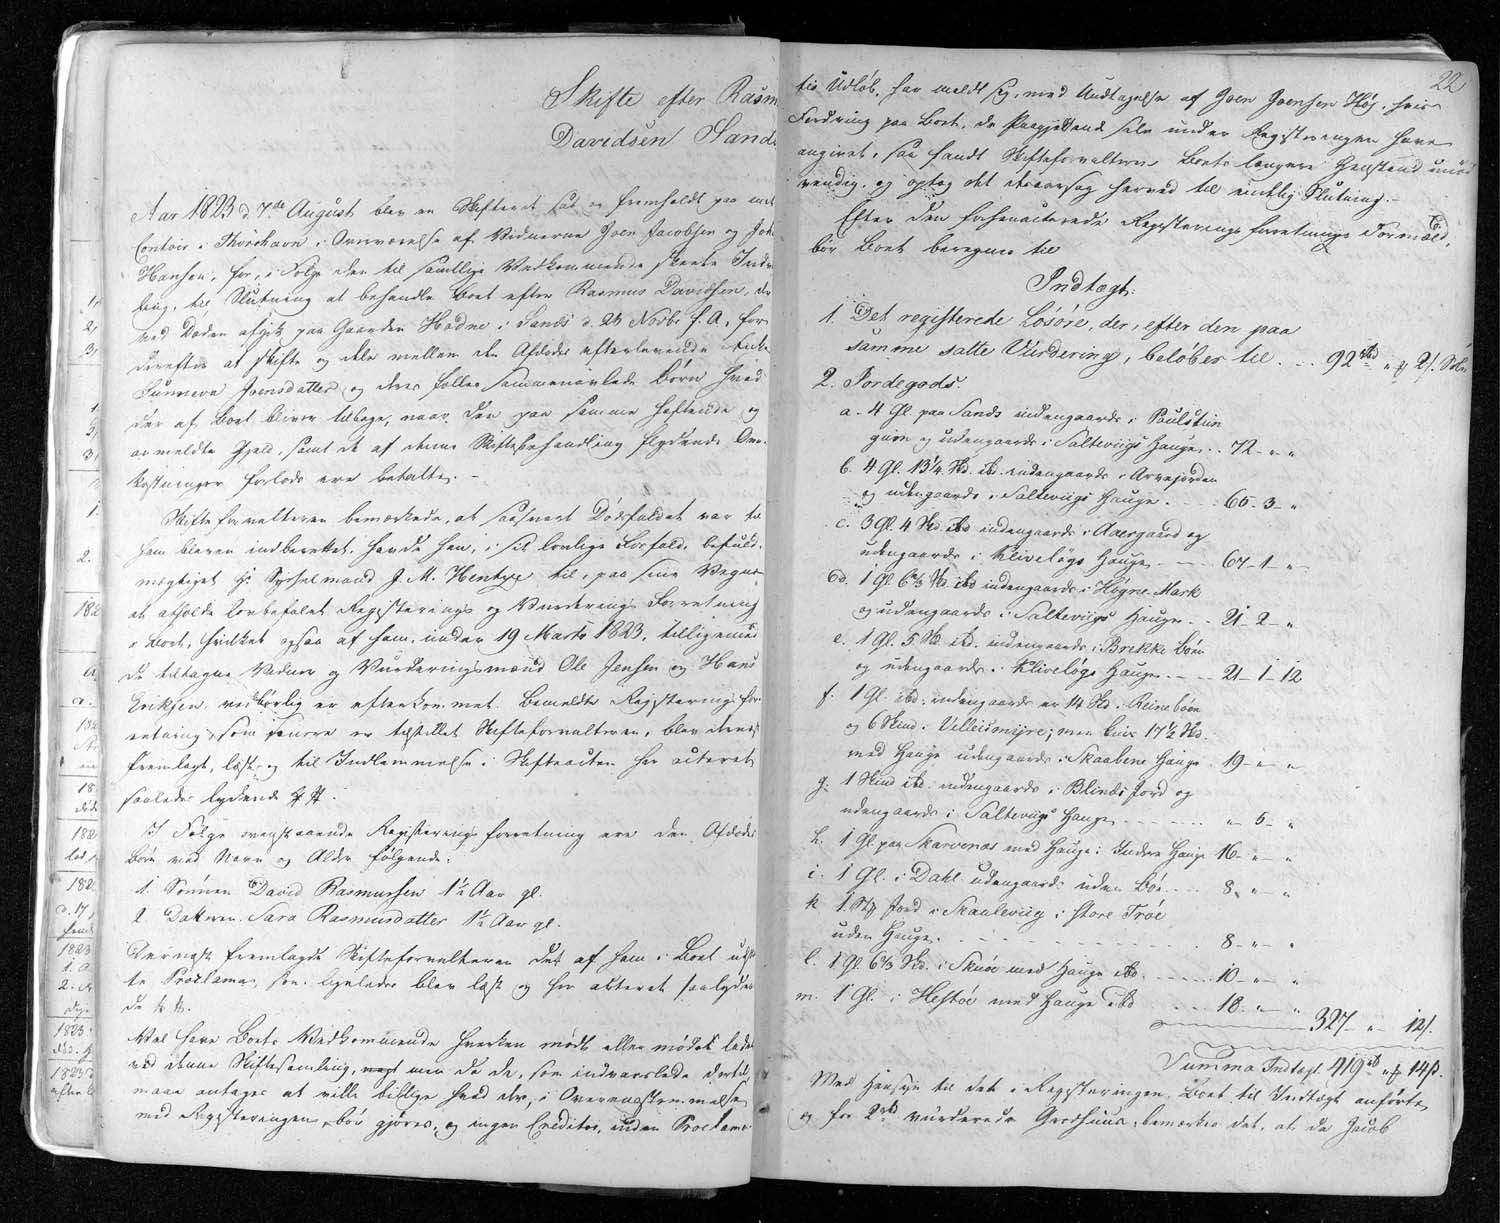 Skifte efter Rasm
Davidsen Sands
Aar 1823 d 7de August blev en Skifteret sat og fremholdt paa mit
Contoir i Thorshavn i Overværelse af Vidnerne Joen Jacobsen og Joh
Hansen, for, i Følge den til samtlige Vedkommende skeete Ind
ling, til Slutning at behandle Boet efter Rasmus Davidsen, der
ved Døden afgik paa Gaarden Hadne i Sands d. 23 Novbr f. A., for
derefter at skifte og dele mellem den Afdødes efterlevende Enke
Sunneva Joensdatter og deres fælles sammenavlede Børn hvad
der af Boet bliver tilbage, naar den paa samme heftende og
anmeldte Gjæld, samt de af denne Skiftebehandling flydende Om-
kostninger forlods ere betalte. –
Skifteforvalteren bemærkede, at saasnart Dødsfaldet var til
ham bleven indberettet, havde han, i sit lovlige Forfald, befuld-
mægtiget Hr Sysselmand J. M. Hentze til, paa sine Vegne
at afholde lovbefalet Registerings og Vurderings Forretning
i Boet, hvilket ogsaa af ham, under 19 Marts 1823, tilligemed
de tiltagne Vidner og Vurderingsmænd Ole Jensen og Hans
Eriksen, vedbørlig er efterkommet. Bemeldte Registerings for-
retning, som senere er tilstillet Skifteforvalteren, blev dernæst
fremlagt, læst og til Indlemmelse i Skifteacten her acteret
saaledes lydende
I Følge ovenstaaende Registerings forretning ere den Afdødes
Børn ved Navn og Alder følgende:
1. Sønnen David Rasmussen 1½ Aar gl.
2. Datteren Sara Rasmusdatter 1½ Aar gl.
Dernæst fremlagde Skifteforvalteren det af ham i Boet udst
te Proclama, som ligeledes blev læst og her acteret saalyden
de
Vel have Boets Vedkommende hverken mødt eller mødet ladet
ved denne Skiftesamling, men da de, som indvarslede dertil,
maae antages at ville bifalde hvad der, i Overeensstemmelse
med Registeringen, bør gjøres, og ingen Creditor, inden Proclama-
22
tis Udløb, har meldt sig, med Undtagelse af Joen Joensen Høj, hvis
Fordring paa Boet, de Paagjeldende selv under Registeringen have
angivet, saa fandt Skifteforvalteren Boets længere Henstand unød
vendig, og optog det itsaarsag herved til endelig Slutning. –
Efter den forhenacterede Registerings forretnings Formæld,
bør Boet beregnes til
Indtægt:
1. Det registerede Løsøre, der, efter den paa
samme satte Vurdering, beløber til . . . 92 rbd „ 2 s. Sølv
2. Jordegods.
a. 4 Gl paa Sands indengaards i Poulstun
guim og udengaards i Salteviigs Hauge . . 72 – „ – „
b. 4 Gl. 13¼ Sk. ibd. indengaards i Arvejorden
og udengaards i Salteviigs Hauge. . . . . 65 – 3 – „
c. 3 Gl. 4 Sk. ibd indengaards i Aaergaard og
udengaards i Kliveløgs Hauge. . . . 67 – 1 – „
d. 1 Gl 6⅔ Sk ibd indengaards i Høgne Mark
og udengaards i Salteviigs Hauge . . 21 – 2 – „
e. 1 Gl. 5 Sk ibd. indengaards i Brekke bøen
og udengaards i Kliveløgs Hauge . . . . 21 – 1 – 12
f. 1 Gl. ibd. indengaards er 14 Sk. i Reinebøen
og 6 Skind i Velleismyre; men kuir 17½ Sk.
med Hauge udengaards i Skaabens Hauge . 19 – „ – „
g. 1 Skind ibd. indengaards i Blinds Jord og
udengaards i Salteviigs Hauge . . . . . „ – 5 – „
h. 1 Gl paa Skarvenæs med Hauge i Indere Hauge 16 – „ – „
i. 1 Gl. i Dahl udengaards uden Bøe . . . . 8 „ – „
k. 1 Sk Jord i Skaaleviig i store Trøe
uden Hauge . . . . . . 8 – „ – „
l. 1 Gl. 6⅔ Sk. i Skuøe med Hauge ibd. . . . . 10 – „ – „
m. 1 Gl. i Hestøe med Hauge ibd . . . 18 – „ – „
327 – „ – 12 s.
Summa Indtægt 419 rbd „ 14 s.
Med Hensyn til det i Registeringen, Boet til Indtægt anførte
og for 2 rbd vurderede Grothuus, bemærkes det, at da Jacob